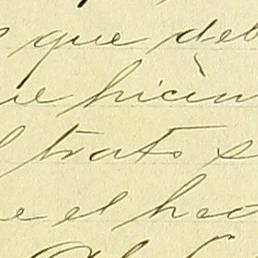 que deb
ue hicier
l trato s
e el hec